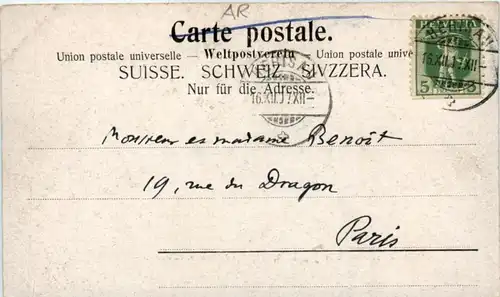 AR
Carte postale.
Union postale universelle — Weltpostverein — Union postale
SUISSE. SCHWEIZ. SVIZZERA.
Nur für die Adresse.
HELVETIA
5 5
16.XII.
XII–
Monsieur et madame Benoît
19, rue du Dragon
Paris